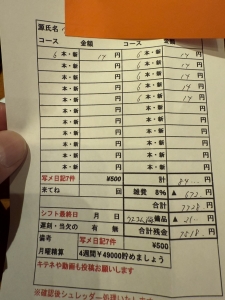 源氏名
コース 金額 コース 金額
6 本・新 14 円 6 本・新 14 円
本・新 円 6 本・新 14 円
本・新 円 6 本・新 14 円
本・新 円 6 本・新 14 円
本・新 円 6 本・新 14 円
本・新 円 本・新 円
本・新 円 本・新 円
本・新 円 本・新 円
本・新 円 本・新 円
本・新 円 本・新 円
写メ日記7件 ¥500 円 計 84 円
来てね 回 雑費 8% ▲ 672 円
合計 7728 円
シフト最終日 月 日 備品 ▲ 円
遅刻・当欠の 有 無 合計残金 円
備考 写メ日記7件 ¥500
月曜精算 4週間￥49000貯めましょう
キテネや動画も投稿お願いします
※確認後シュレッダー処理